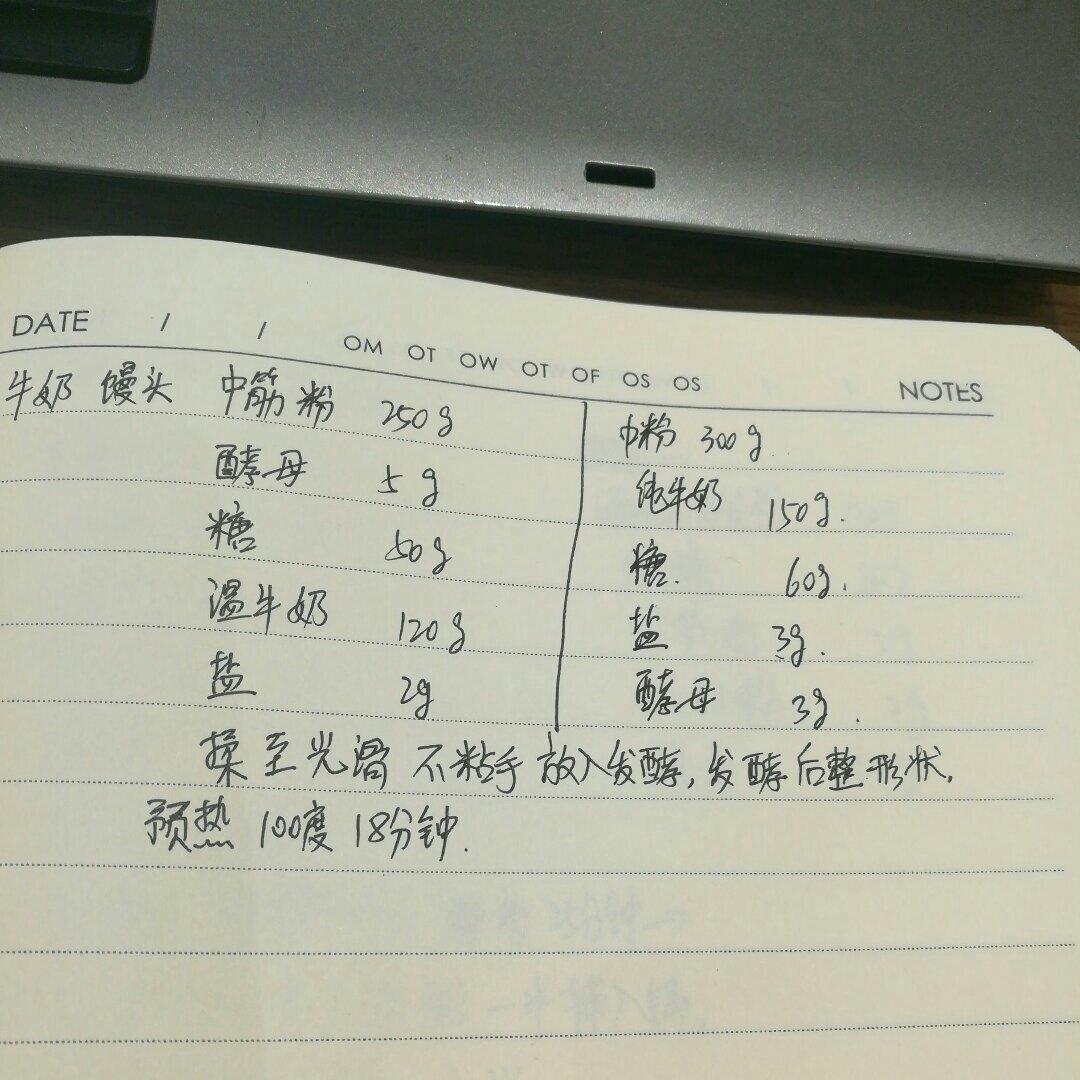 DATE / / OM OT OW OT OF OS OS NOTES
牛奶 馒头 中筋粉 250g
酵母 5g
糖 50g
温牛奶 120g
盐 2g
中粉 300g.
纯牛奶 150g.
糖. 60g.
盐 3g.
酵母 3g.
揉至光滑 不粘手 放入发酵, 发酵后整形状.
预热 100度 18分钟.